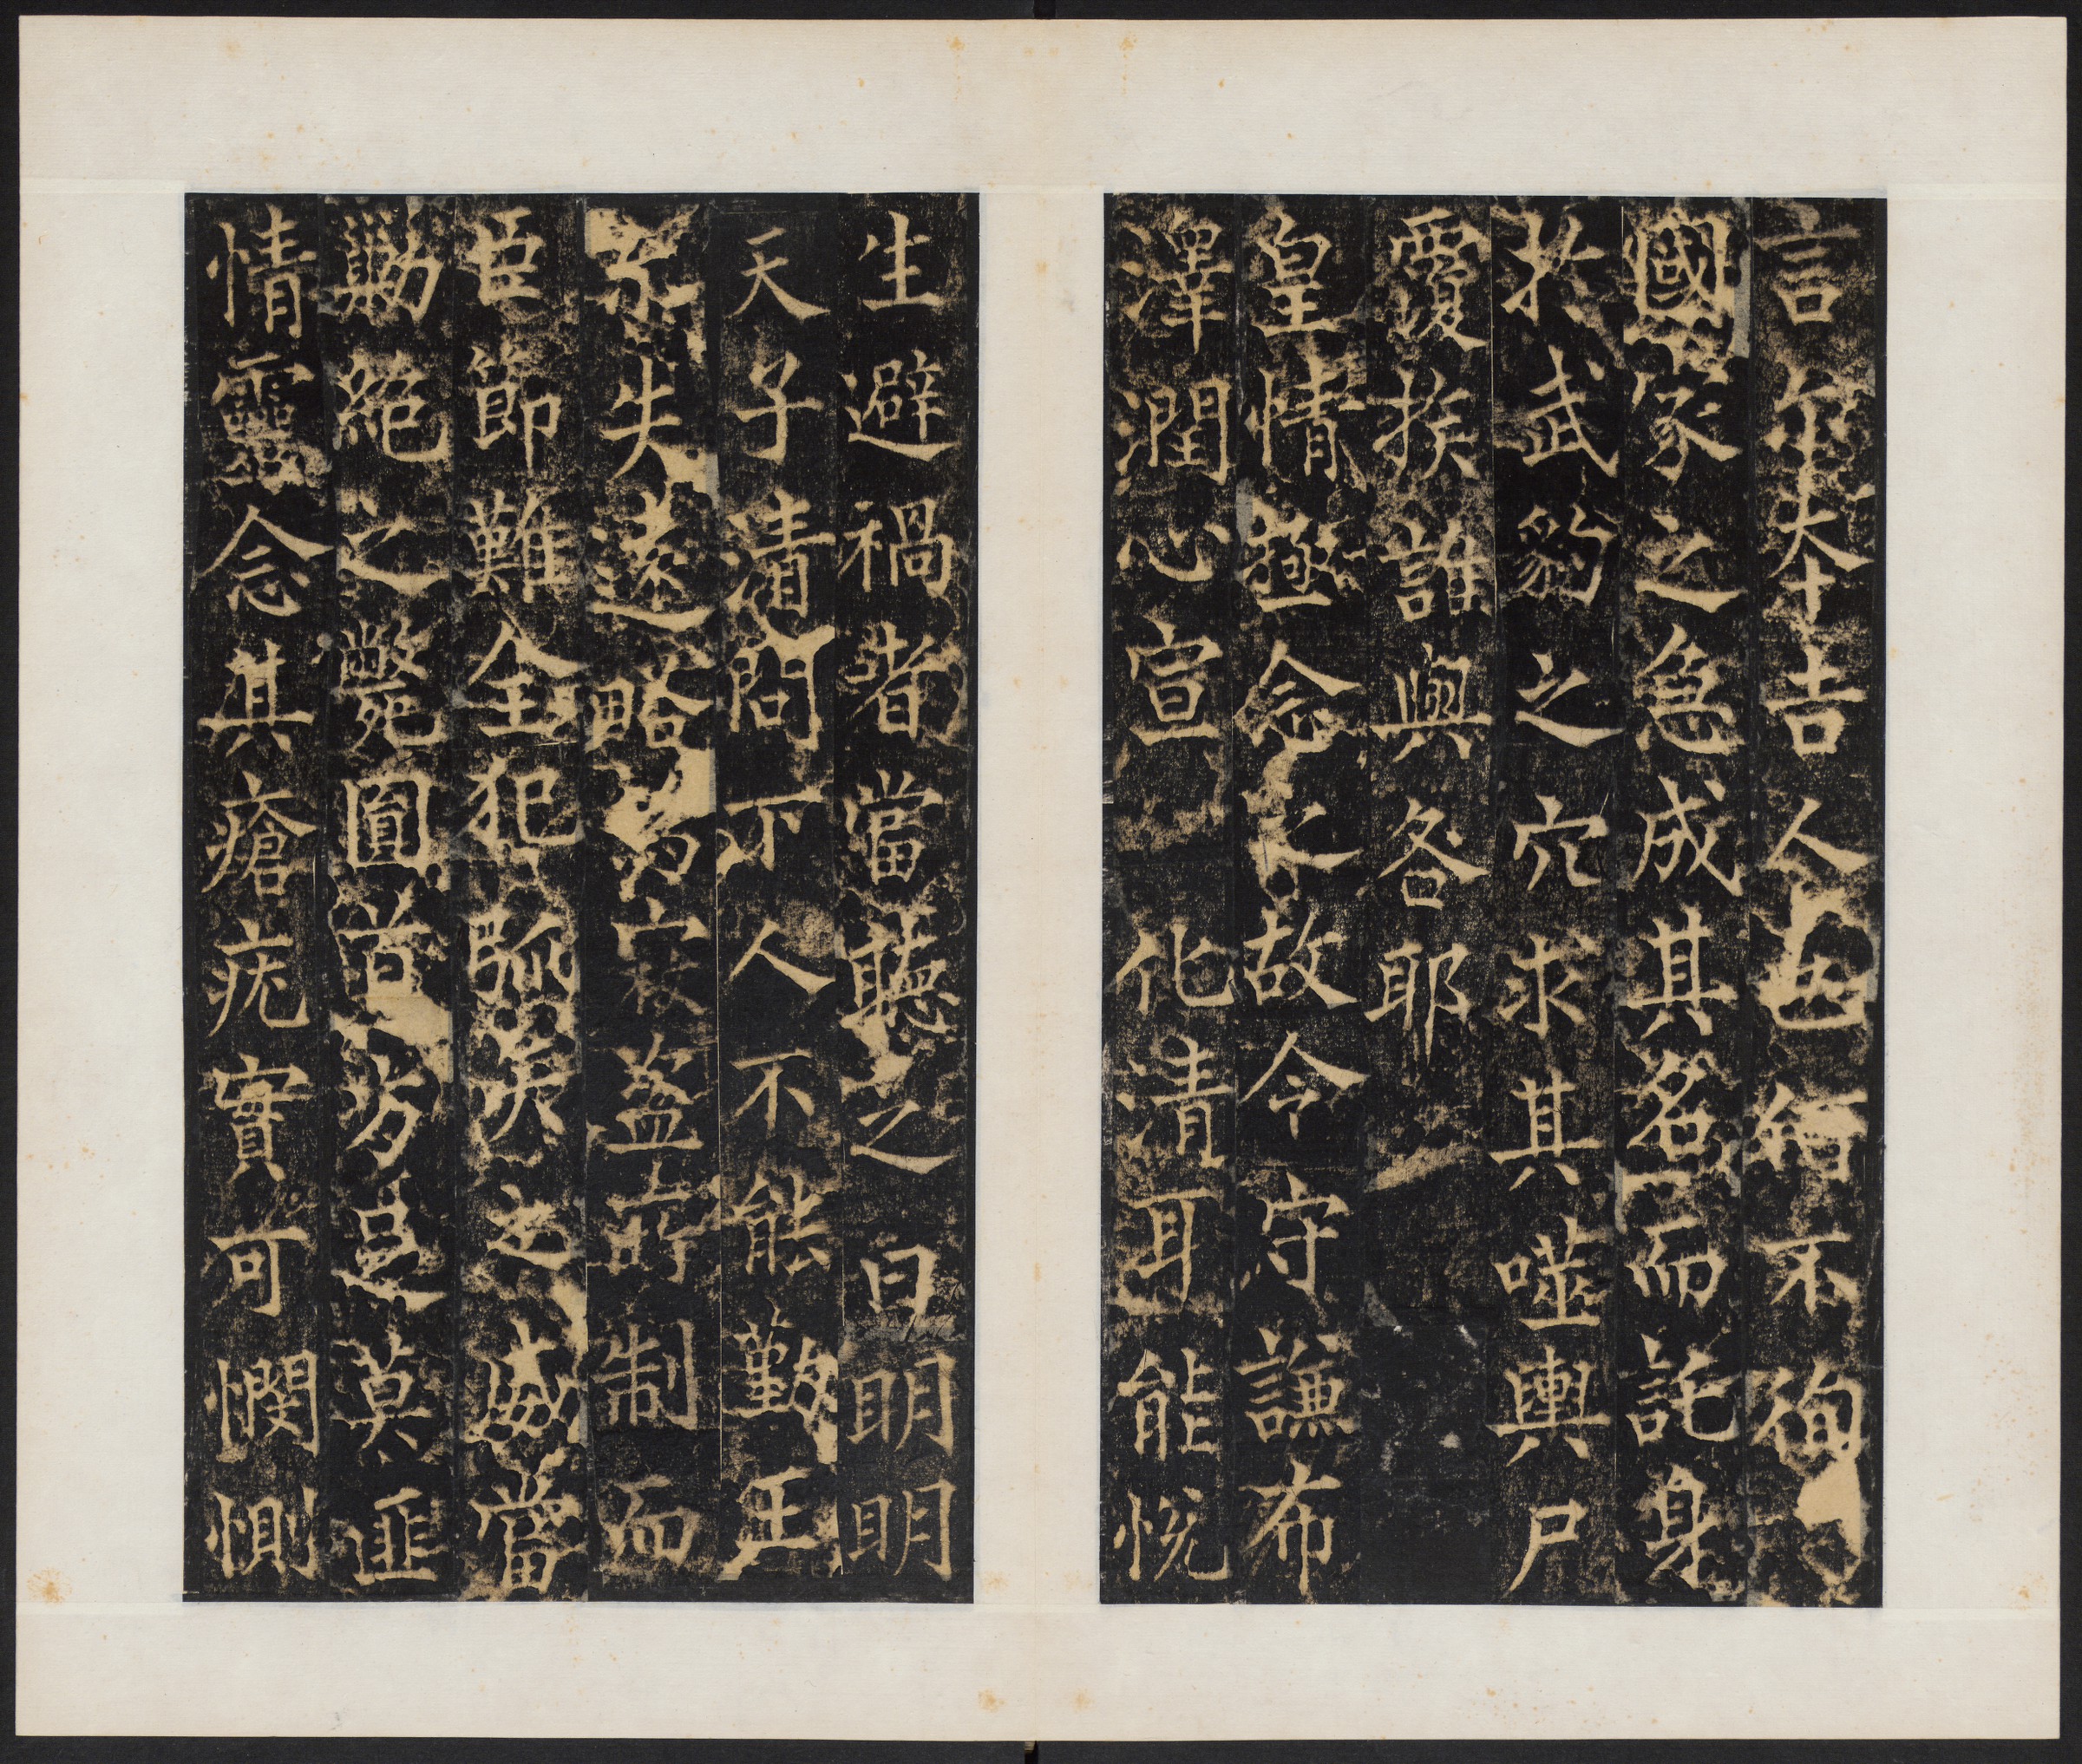 言矣夫吉人也繪不徇
國家之急成其名而託身
扵武豹之穴求其噬輿尸
覆族誰與各耶
皇情極念之故令守謙布
澤潤心宣化清耳能悅
生避禍者當聽之曰明明
天子清問下人不能勤王
失遠略為寇盜所制而
臣節難全犯弧矢之威當
勦絕之斃圓首方足莫匪
情靈念其瘡疣實可憫惻